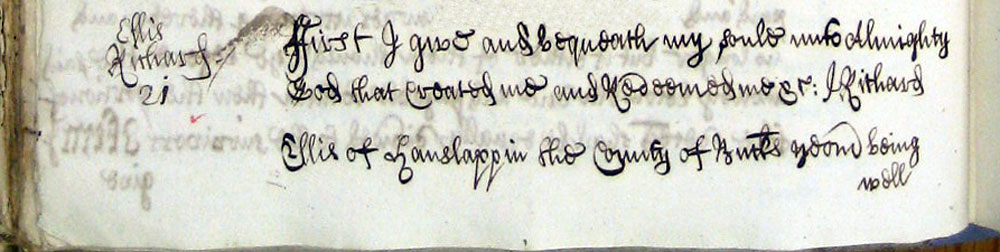 Ellis
Richard
21
First I give and bequeath my soule unto Almighty
God that Created me and Redeemed me &c: I Richard
Ellis of Hanslapp in the County of Bucks yeom being
well